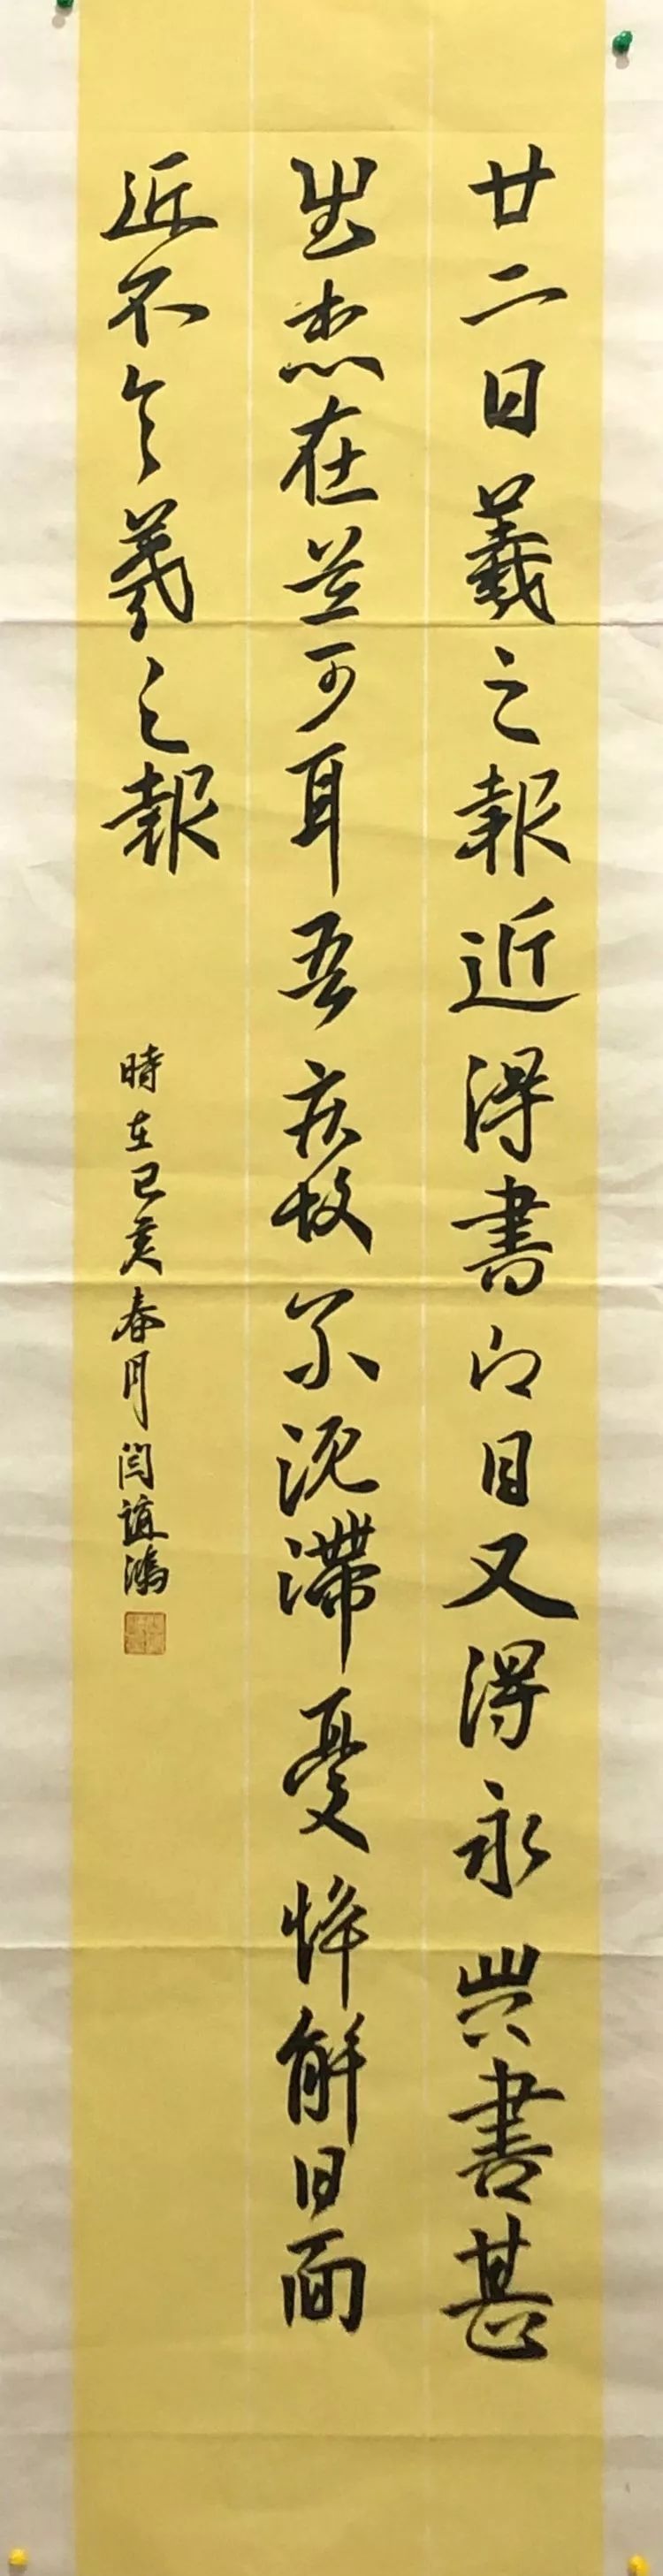 廿二日羲之報近得書即日又得永興書甚
在並可耳吾疾故尔沉滯憂悴解日面
近不具羲之報
時在己亥春月閆誼鴻